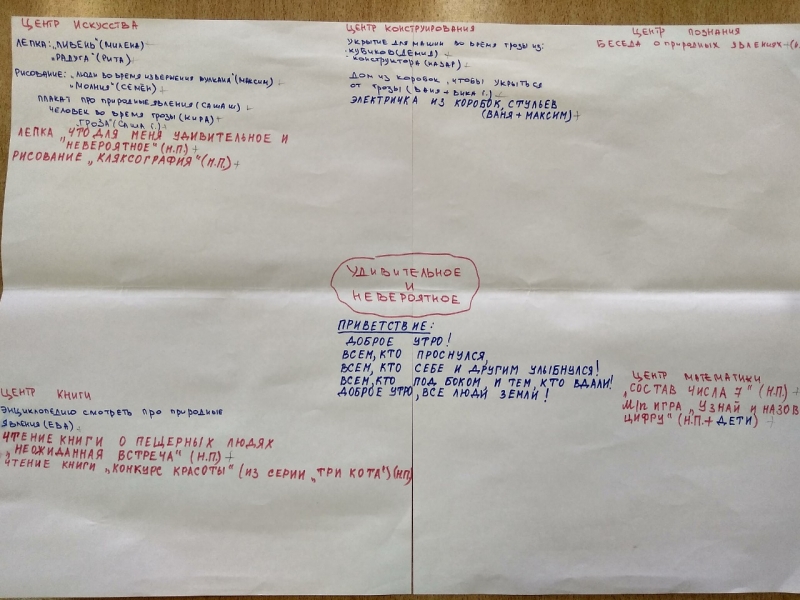 ЦЕНТР ИСКУССТВА
ЛЕПКА: „ЛИВЕНЬ" (МИЛЕНА)
„РАДУГА" (РИТА)
РИСОВАНИЕ: „ЛЮДИ ВО ВРЕМЯ ИЗВЕРЖЕНИЯ ВУЛКАНА" (МАКСИМ)
„МОЛНИЯ" (СЕМЁН)
ПЛАКАТ ПРО ПРИРОДНЫЕ ЯВЛЕНИЯ (САША Ш) +
ЧЕЛОВЕК ВО ВРЕМЯ ГРОЗЫ (КИРА) +
„ГРОЗА" (САША Г.) +
ЛЕПКА „ЧТО ДЛЯ МЕНЯ УДИВИТЕЛЬНОЕ И
НЕВЕРОЯТНОЕ" (Н.П.) +
РИСОВАНИЕ „КЛЯКСОГРАФИЯ" (Н.П.) +
ЦЕНТР КОНСТРУИРОВАНИЯ
УКРЫТИЕ ДЛЯ МАШИН ВО ВРЕМЯ ГРОЗЫ ИЗ:
· КУБИКОВ (ДЕМИД) +
· КОНСТРУКТОРА (НАЗАР) +
ДОМ ИЗ КОРОБОК, ЧТОБЫ УКРЫТЬСЯ
ОТ ГРОЗЫ (ВАНЯ + ВИКА Г.) +
ЭЛЕКТРИЧКА ИЗ КОРОБОК, СТУЛЬЕВ
(ВАНЯ + МАКСИМ) +
ЦЕНТР ПОЗНАНИЯ
БЕСЕДА О ПРИРОДНЫХ ЯВЛЕНИЯХ
УДИВИТЕЛЬНОЕ
И
НЕВЕРОЯТНОЕ
ПРИВЕТСТВИЕ:
ДОБРОЕ УТРО!
ВСЕМ, КТО ПРОСНУЛСЯ,
ВСЕМ, КТО СЕБЕ И ДРУГИМ УЛЫБНУЛСЯ!
ВСЕМ, КТО ПОД БОКОМ И ТЕМ, КТО ВДАЛИ!
ДОБРОЕ УТРО, ВСЕ ЛЮДИ ЗЕМЛИ!
ЦЕНТР КНИГИ
ЭНЦИКЛОПЕДИЮ СМОТРЕТЬ ПРО ПРИРОДНЫЕ
ЯВЛЕНИЯ (ЕВА) +
ЧТЕНИЕ КНИГИ О ПЕЩЕРНЫХ ЛЮДЯХ
„НЕОЖИДАННАЯ ВСТРЕЧА" (Н.П.) +
ЧТЕНИЕ КНИГИ „КОНКУРС КРАСОТЫ" (ИЗ СЕРИИ „ТРИ КОТА") (Н.П)
ЦЕНТР МАТЕМАТИКИ
„СОСТАВ ЧИСЛА 7" (Н.П.) +
М/П ИГРА „УЗНАЙ И НАЗОВИ
ЦИФРУ" (Н.П. + ДЕТИ) +